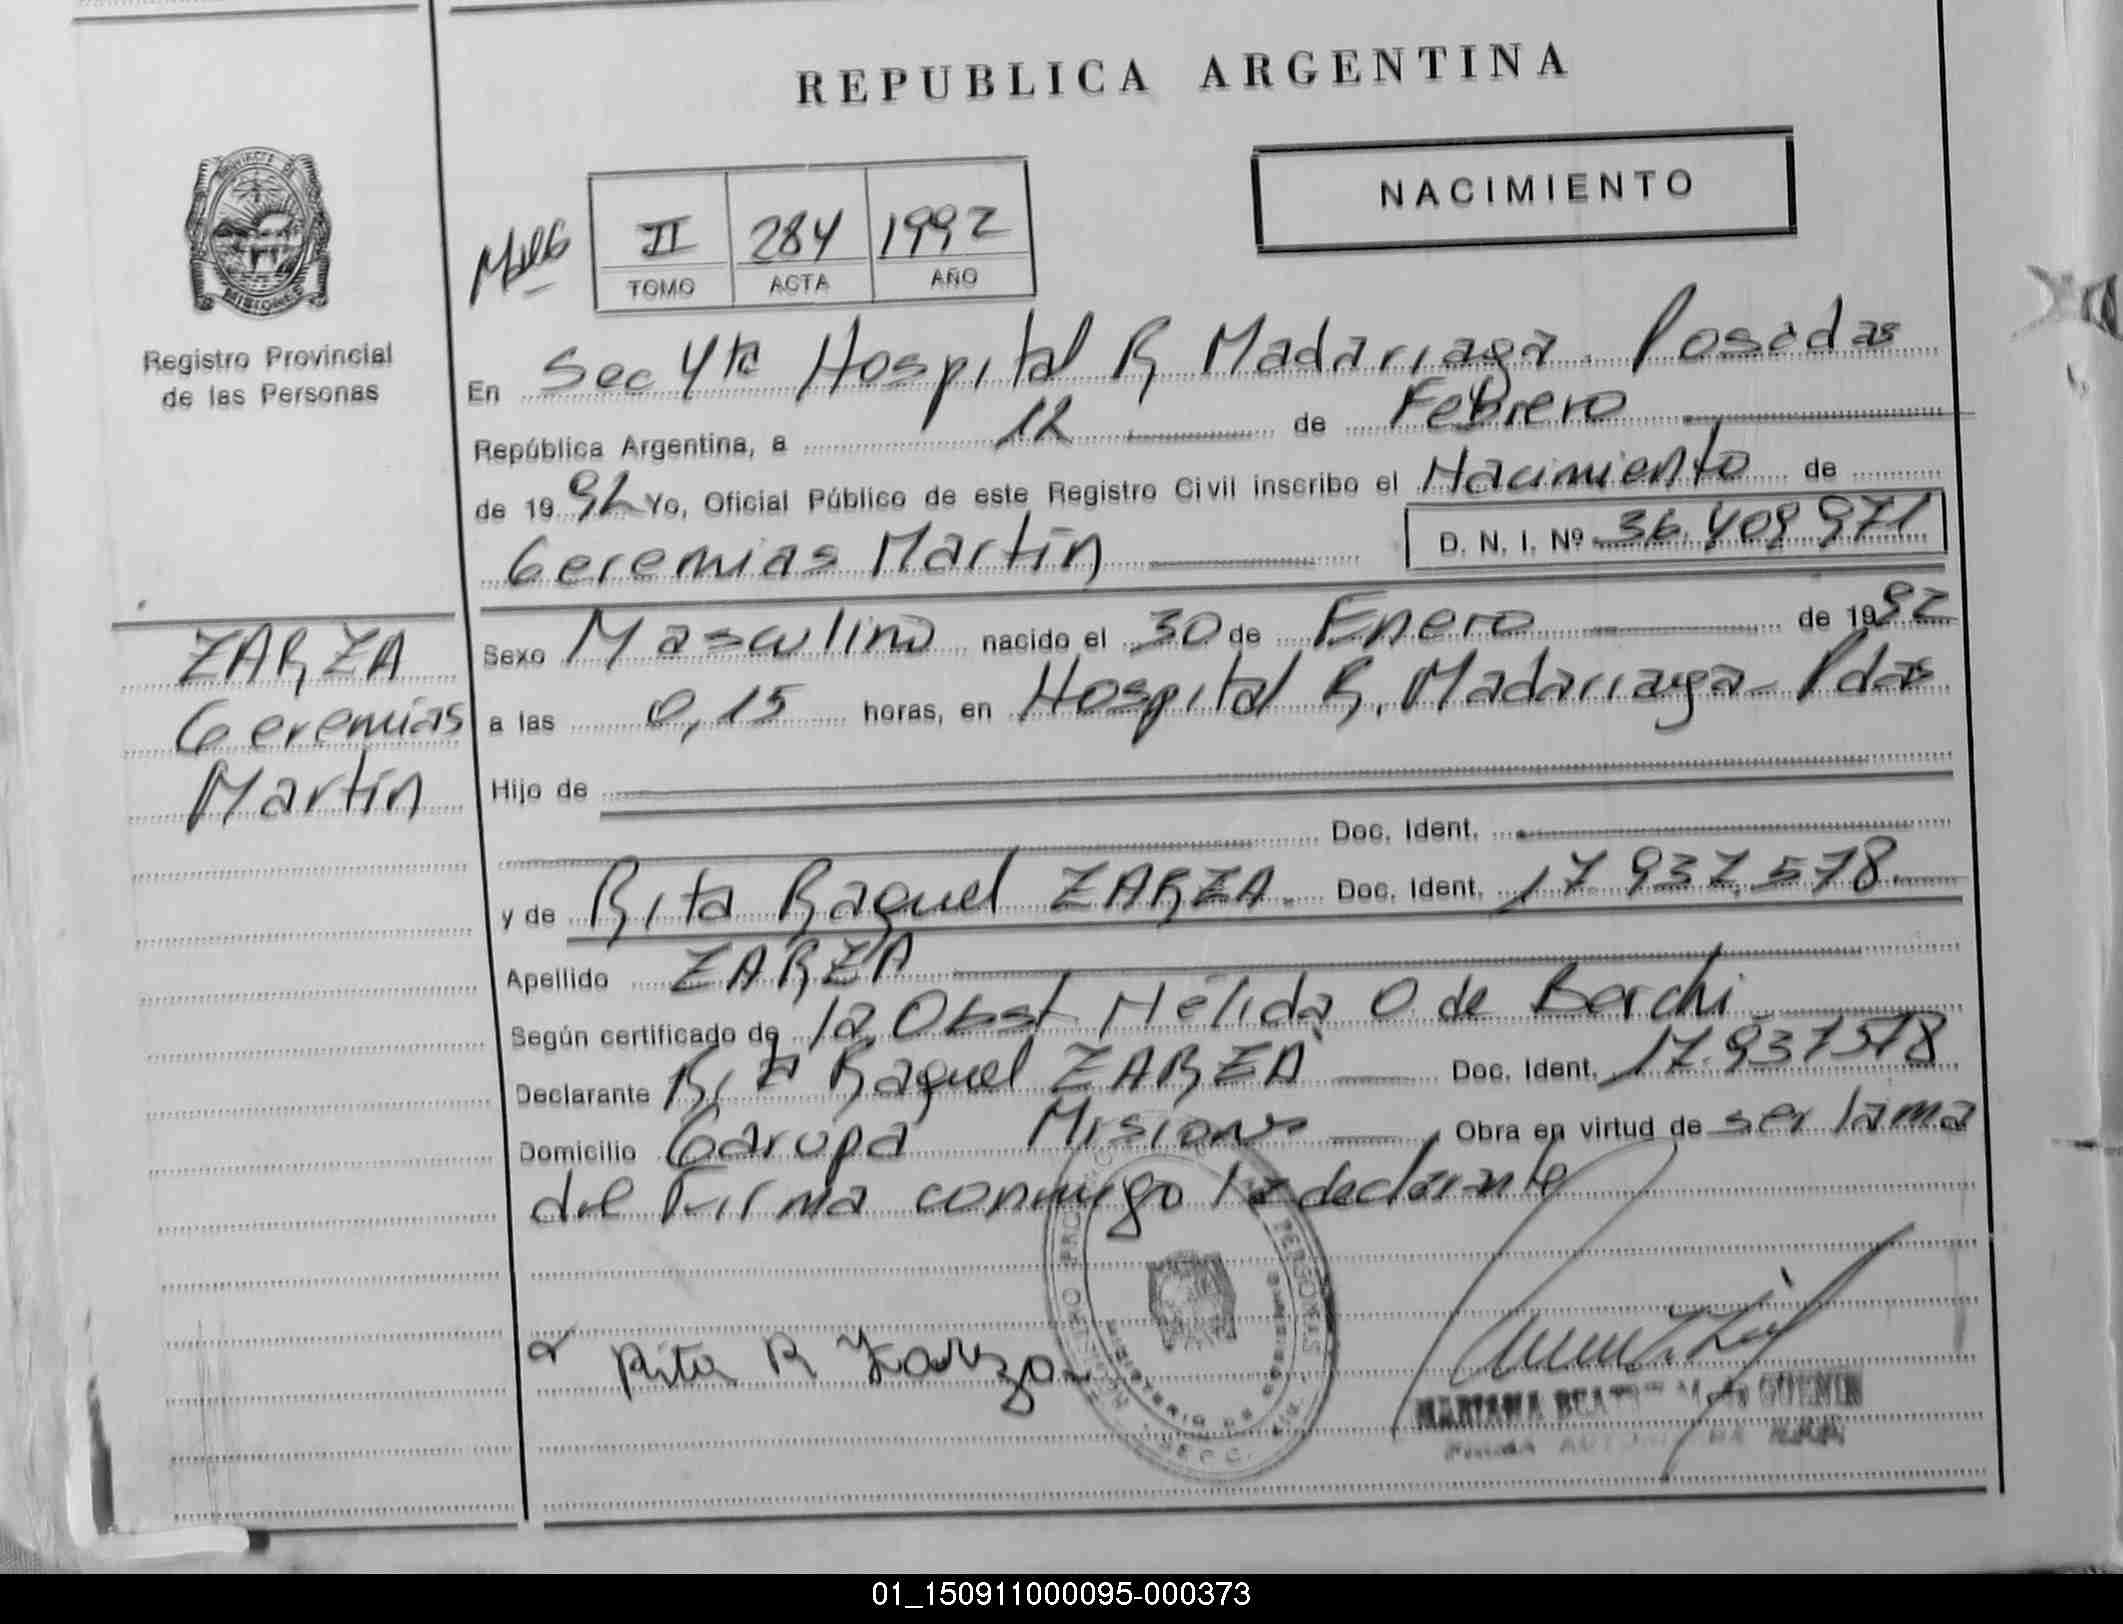 REPUBLICA ARGENTINA
NACIMIENTO
II 284 1992
TOMO ACTA AÑO
PROVINCIA DE
MISIONES
Registro Provincial
de las Personas
En Sec 4ta Hospital R Madariaga. Posadas
República Argentina, a 12 de Febrero
de 1992 Yo, Oficial Público de este Registro Civil inscribo el Nacimiento de
Geremias Martín D. N. I. Nº 36.409.971
ZARZA
Geremias
Martín
Sexo Masculino nacido el 30 de Enero de 1992
a las 0,15 horas, en Hospital R. Madariaga - Pdas
Hijo de
Doc. Ident.
y de Rita Raquel ZARZA. Doc. Ident. 17.937.578
Apellido ZARZA
Según certificado de la Obst Nélida O. de Borchi
Declarante Rita Raquel ZARZA Doc. Ident. 17.937578
Domicilio Garupá Misiones Obra en virtud de ser la ma
dre Firma conmigo la declarante
Rita R Zarza
MARIANA GUENIN
01_150911000095-000373